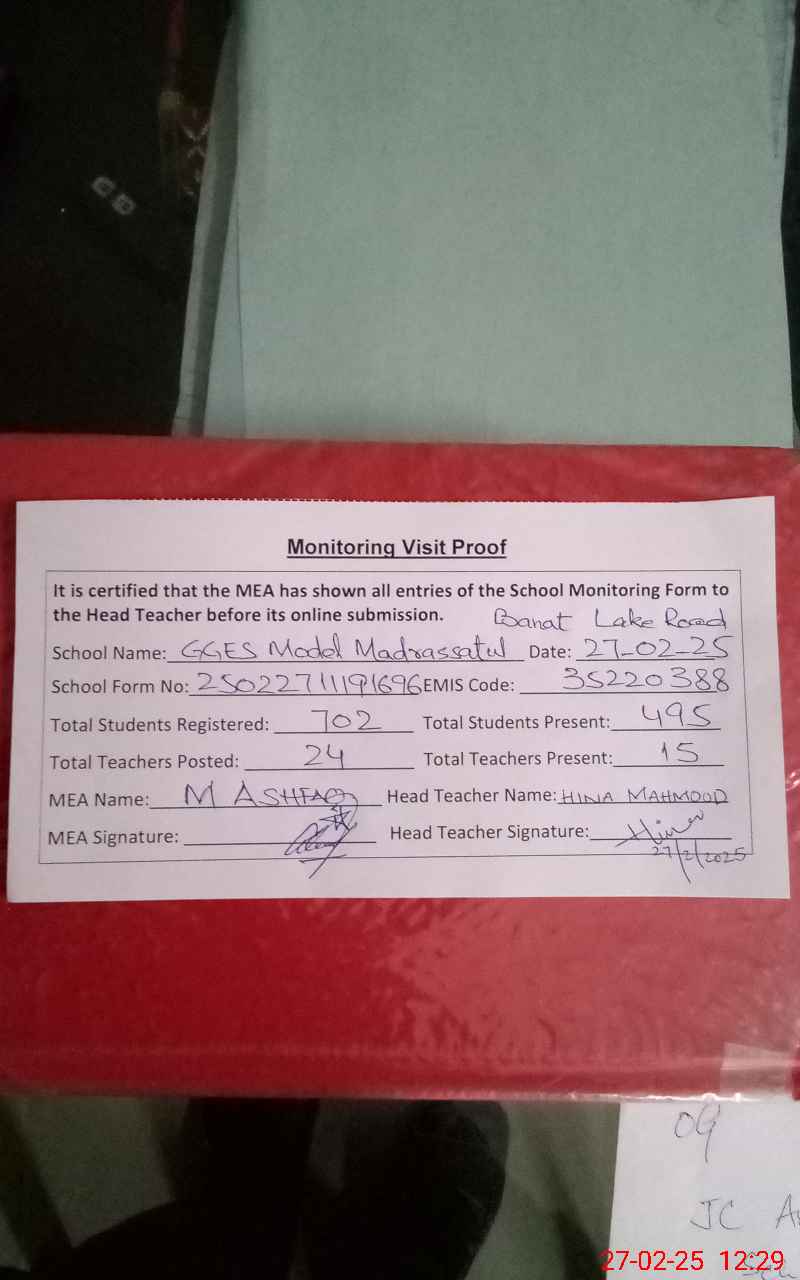 Monitoring Visit Proof
It is certified that the MEA has shown all entries of the School Monitoring Form to
the Head Teacher before its online submission.
Banat Lake Road
School Name: GGES Model Madrassatul Date: 27-02-25
School Form No: 25022711191696 EMIS Code: 35220388
Total Students Registered: 702 Total Students Present: 495
Total Teachers Posted: 24 Total Teachers Present: 15
MEA Name: M ASHFAQ Head Teacher Name: HINA MAHMOOD
MEA Signature: Head Teacher Signature: Hina
27/2/2025
JC
27-02-25 12:29